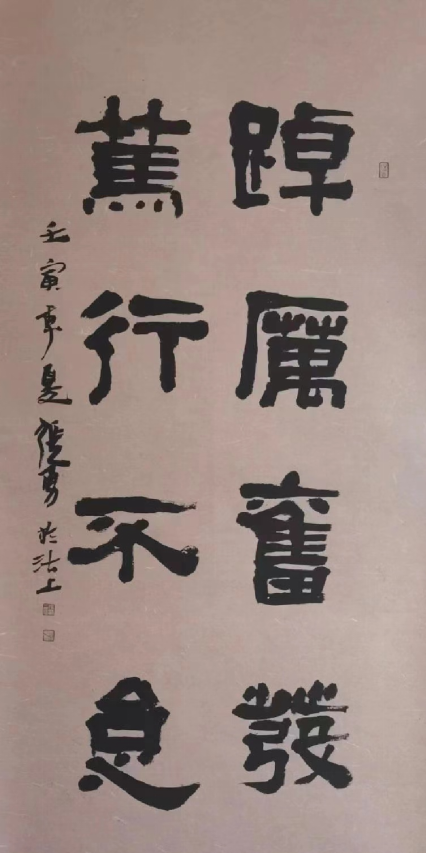 踔厲奮發
篤行不怠
壬寅年夏張勇於沽上